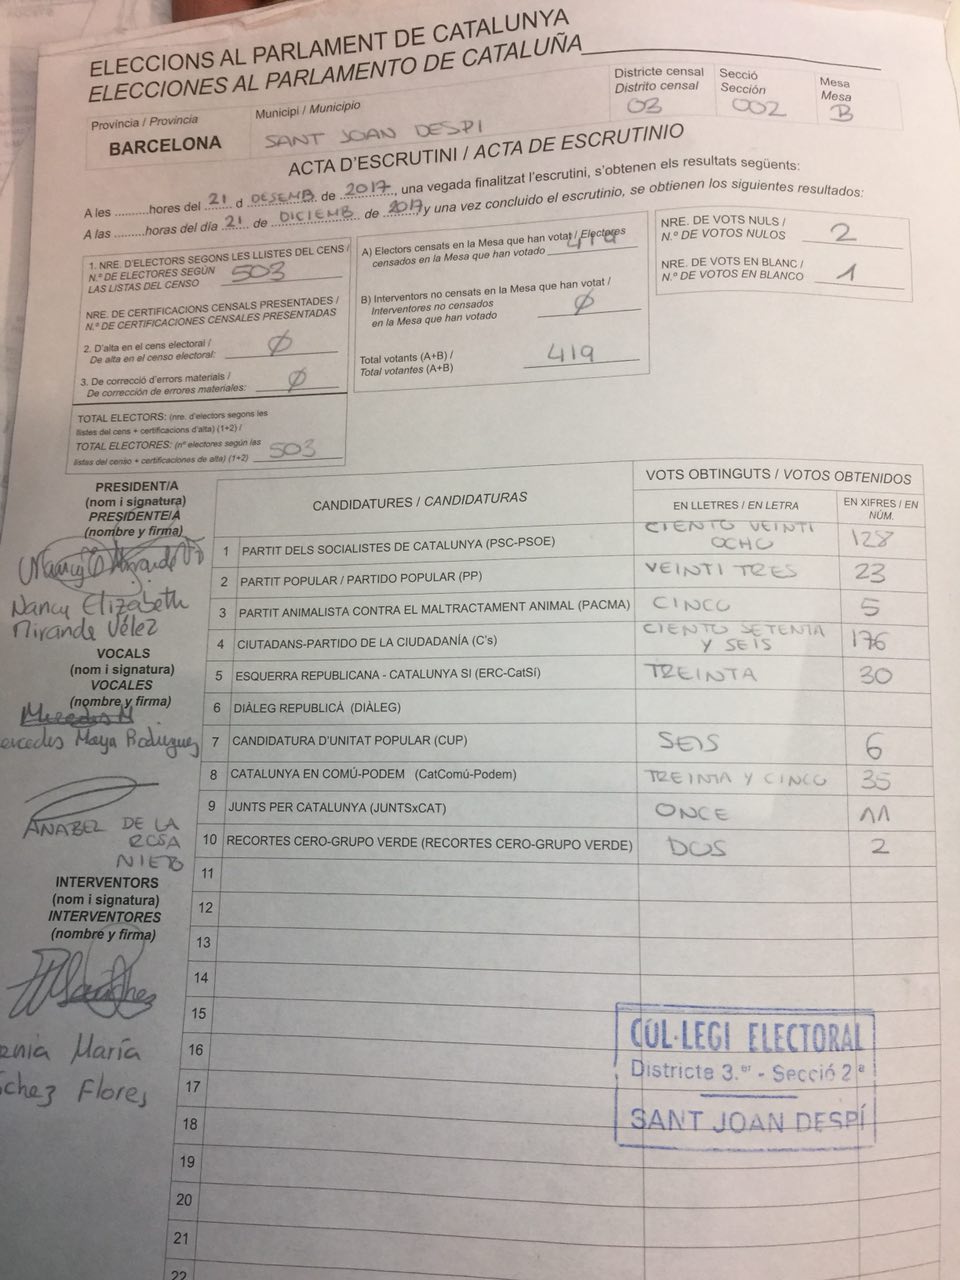 ELECCIONS AL PARLAMENT DE CATALUNYA
ELECCIONES AL PARLAMENTO DE CATALUÑA
Província / Provincia
BARCELONA
Municipi / Municipio
SANT JOAN DESPI
Districte censal
Distrito censal
03
Secció
Sección
002
Mesa
Mesa
B
ACTA D'ESCRUTINI / ACTA DE ESCRUTINIO
A les ..........hores del 21 d DESEMB de 2017, una vegada finalitzat l'escrutini, s'obtenen els resultats següents:
A las .........horas del día 21 de DICIEMB de 2017 y una vez concluido el escrutinio, se obtienen los siguientes resultados:
1. NRE. D'ELECTORS SEGONS LES LLISTES DEL CENS /
N.º DE ELECTORES SEGÚN
LAS LISTAS DEL CENSO
503
NRE. DE CERTIFICACIONS CENSALS PRESENTADES /
N.º DE CERTIFICACIONES CENSALES PRESENTADAS
2. D'alta en el cens electoral /
De alta en el censo electoral:
Ø
3. De correcció d'errors materials /
De corrección de errores materiales:
Ø
TOTAL ELECTORS: (nre. d'electors segons les
llistes del cens + certificacions d'alta) (1+2) /
TOTAL ELECTORES: (nº electores según las
listas del censo + certificaciones de alta) (1+2)
503
A) Electors censats en la Mesa que han votat / Electores
censados en la Mesa que han votado
419
B) Interventors no censats en la Mesa que han votat /
Interventores no censados
en la Mesa que han votado
Ø
Total votants (A+B) /
Total votantes (A+B)
419
NRE. DE VOTS NULS /
N.º DE VOTOS NULOS
2
NRE. DE VOTS EN BLANC /
N.º DE VOTOS EN BLANCO
1
PRESIDENT/A
(nom i signatura)
PRESIDENTE/A
(nombre y firma)
Nancy Elizabeth
Mirande Vélez
VOCALS
(nom i signatura)
VOCALES
(nombre y firma)
Maya Rodriguez
ANABEL DE LA
ROSA
NIETO
INTERVENTORS
(nom i signatura)
INTERVENTORES
(nombre y firma)
María
Flores
CANDIDATURES / CANDIDATURAS
VOTS OBTINGUTS / VOTOS OBTENIDOS
EN LLETRES / EN LETRA
EN XIFRES / EN
NÚM.
1 PARTIT DELS SOCIALISTES DE CATALUNYA (PSC-PSOE) CIENTO VEINTI OCHO 128
2 PARTIT POPULAR / PARTIDO POPULAR (PP) VEINTI TRES 23
3 PARTIT ANIMALISTA CONTRA EL MALTRACTAMENT ANIMAL (PACMA) CINCO 5
4 CIUTADANS-PARTIDO DE LA CIUDADANÍA (C's) CIENTO SETENTA Y SEIS 176
5 ESQUERRA REPUBLICANA - CATALUNYA SI (ERC-CatSí) TREINTA 30
6 DIÀLEG REPUBLICÀ (DIÀLEG)
7 CANDIDATURA D'UNITAT POPULAR (CUP) SEIS 6
8 CATALUNYA EN COMÚ-PODEM (CatComú-Podem) TREINTA Y CINCO 35
9 JUNTS PER CATALUNYA (JUNTSxCAT) ONCE 11
10 RECORTES CERO-GRUPO VERDE (RECORTES CERO-GRUPO VERDE) DOS 2
11
12
13
14
15
16
17
18
19
20
21
22
COL·LEGI ELECTORAL
Districte 3.er - Secció 2ª
SANT JOAN DESPÍ